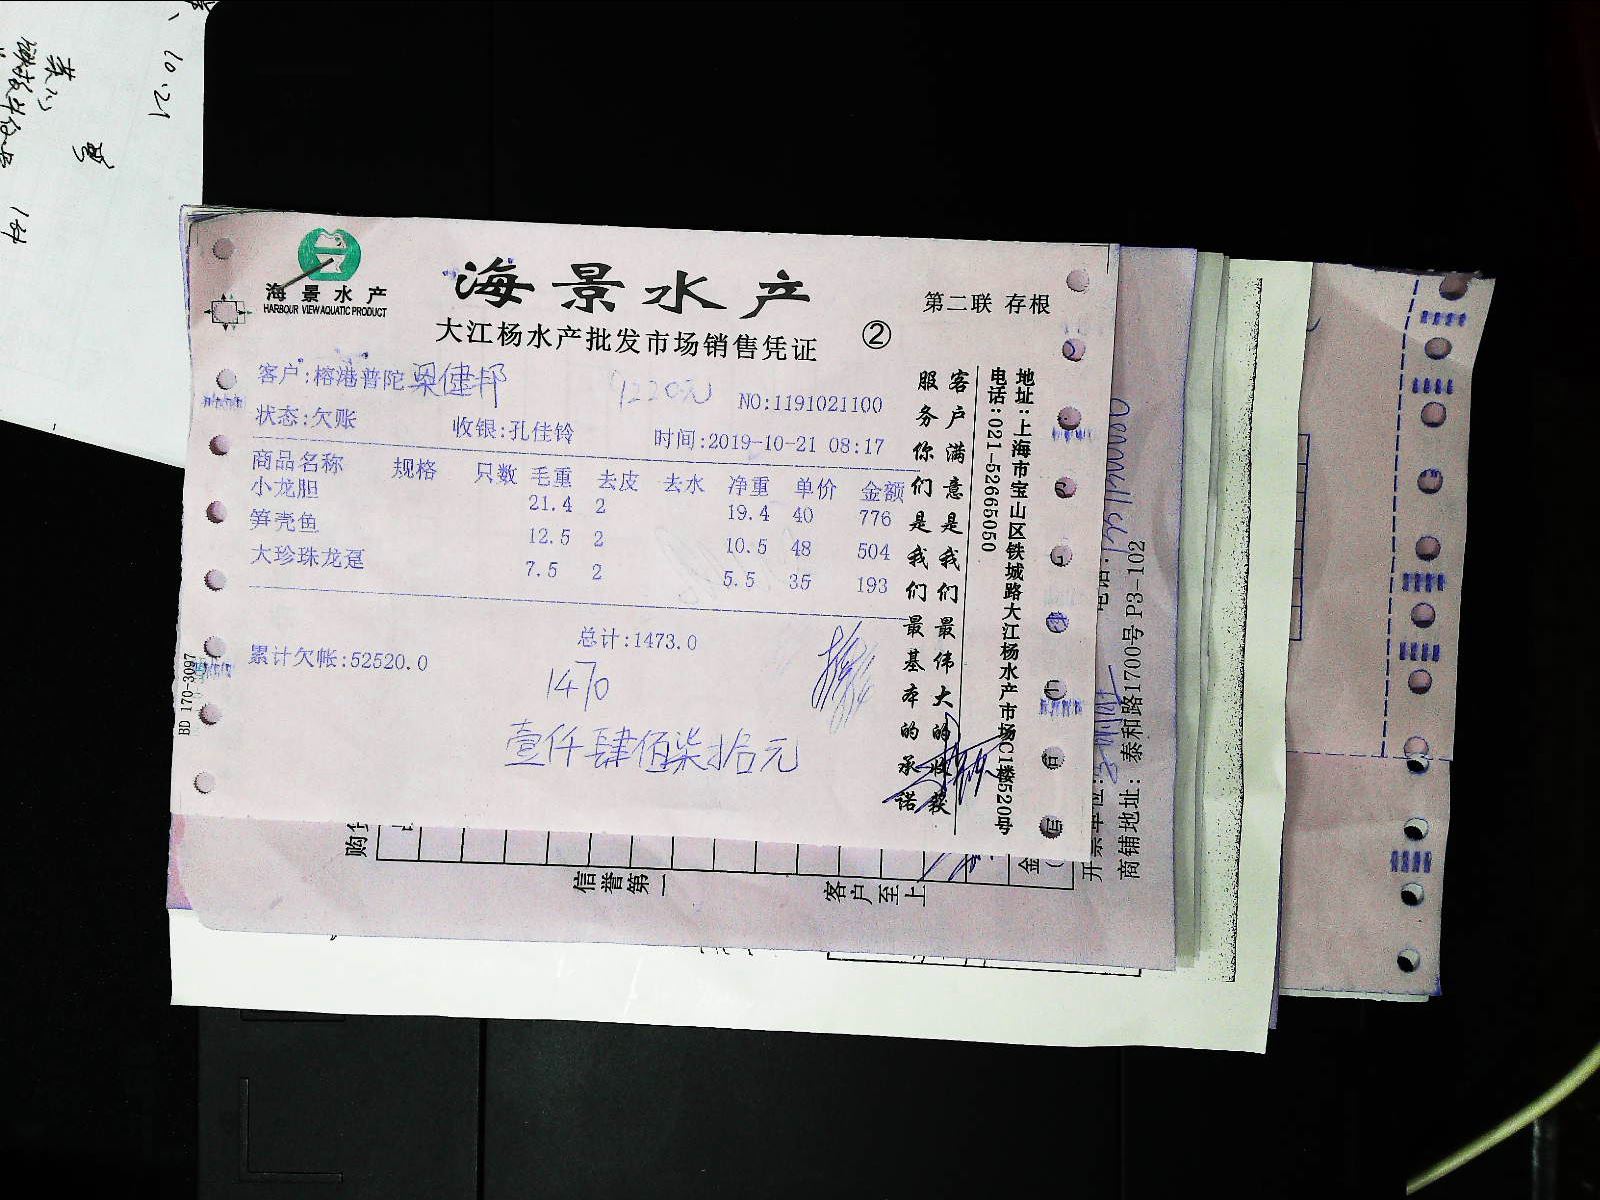 10.21
海景水产
HARBOUR VIEW AQUATIC PRODUCT
海景水产
大江杨水产批发市场销售凭证
②
第二联 存根
客户:榕港普陀梁健邦
NO:1191021100
状态:欠账 收银:孔佳铃 时间:2019-10-21 08:17
商品名称 规格 只数 毛重 去皮 去水 净重 单价 金额
小龙胆 21.4 2 19.4 40 776
笋壳鱼 12.5 2 10.5 48 504
大珍珠龙趸 7.5 2 5.5 35 193
总计:1473.0
累计欠帐:52520.0
1470
壹仟肆佰柒拾元
客户满意是我们最伟大的收获
服务你们是我们最基本的承诺
地址:上海市宝山区铁城路大江杨水产市场C1楼520号
电话:021-52665050
BD 170-3097
信誉第一
客户至上
商铺地址:泰和路1700号P3-102